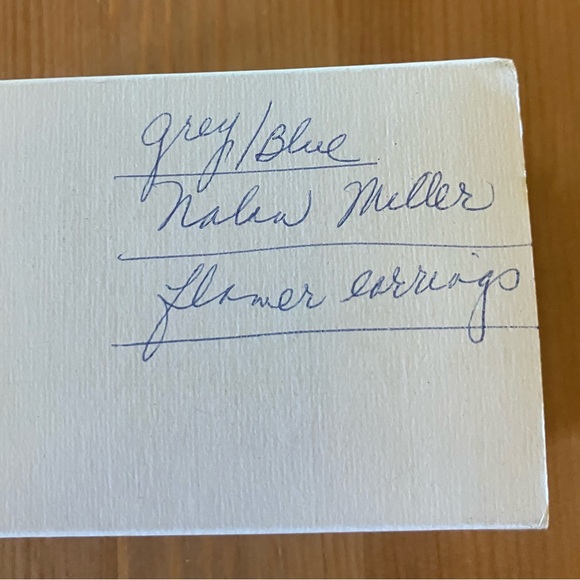 grey/Blue
Nolan Miller
flower earrings